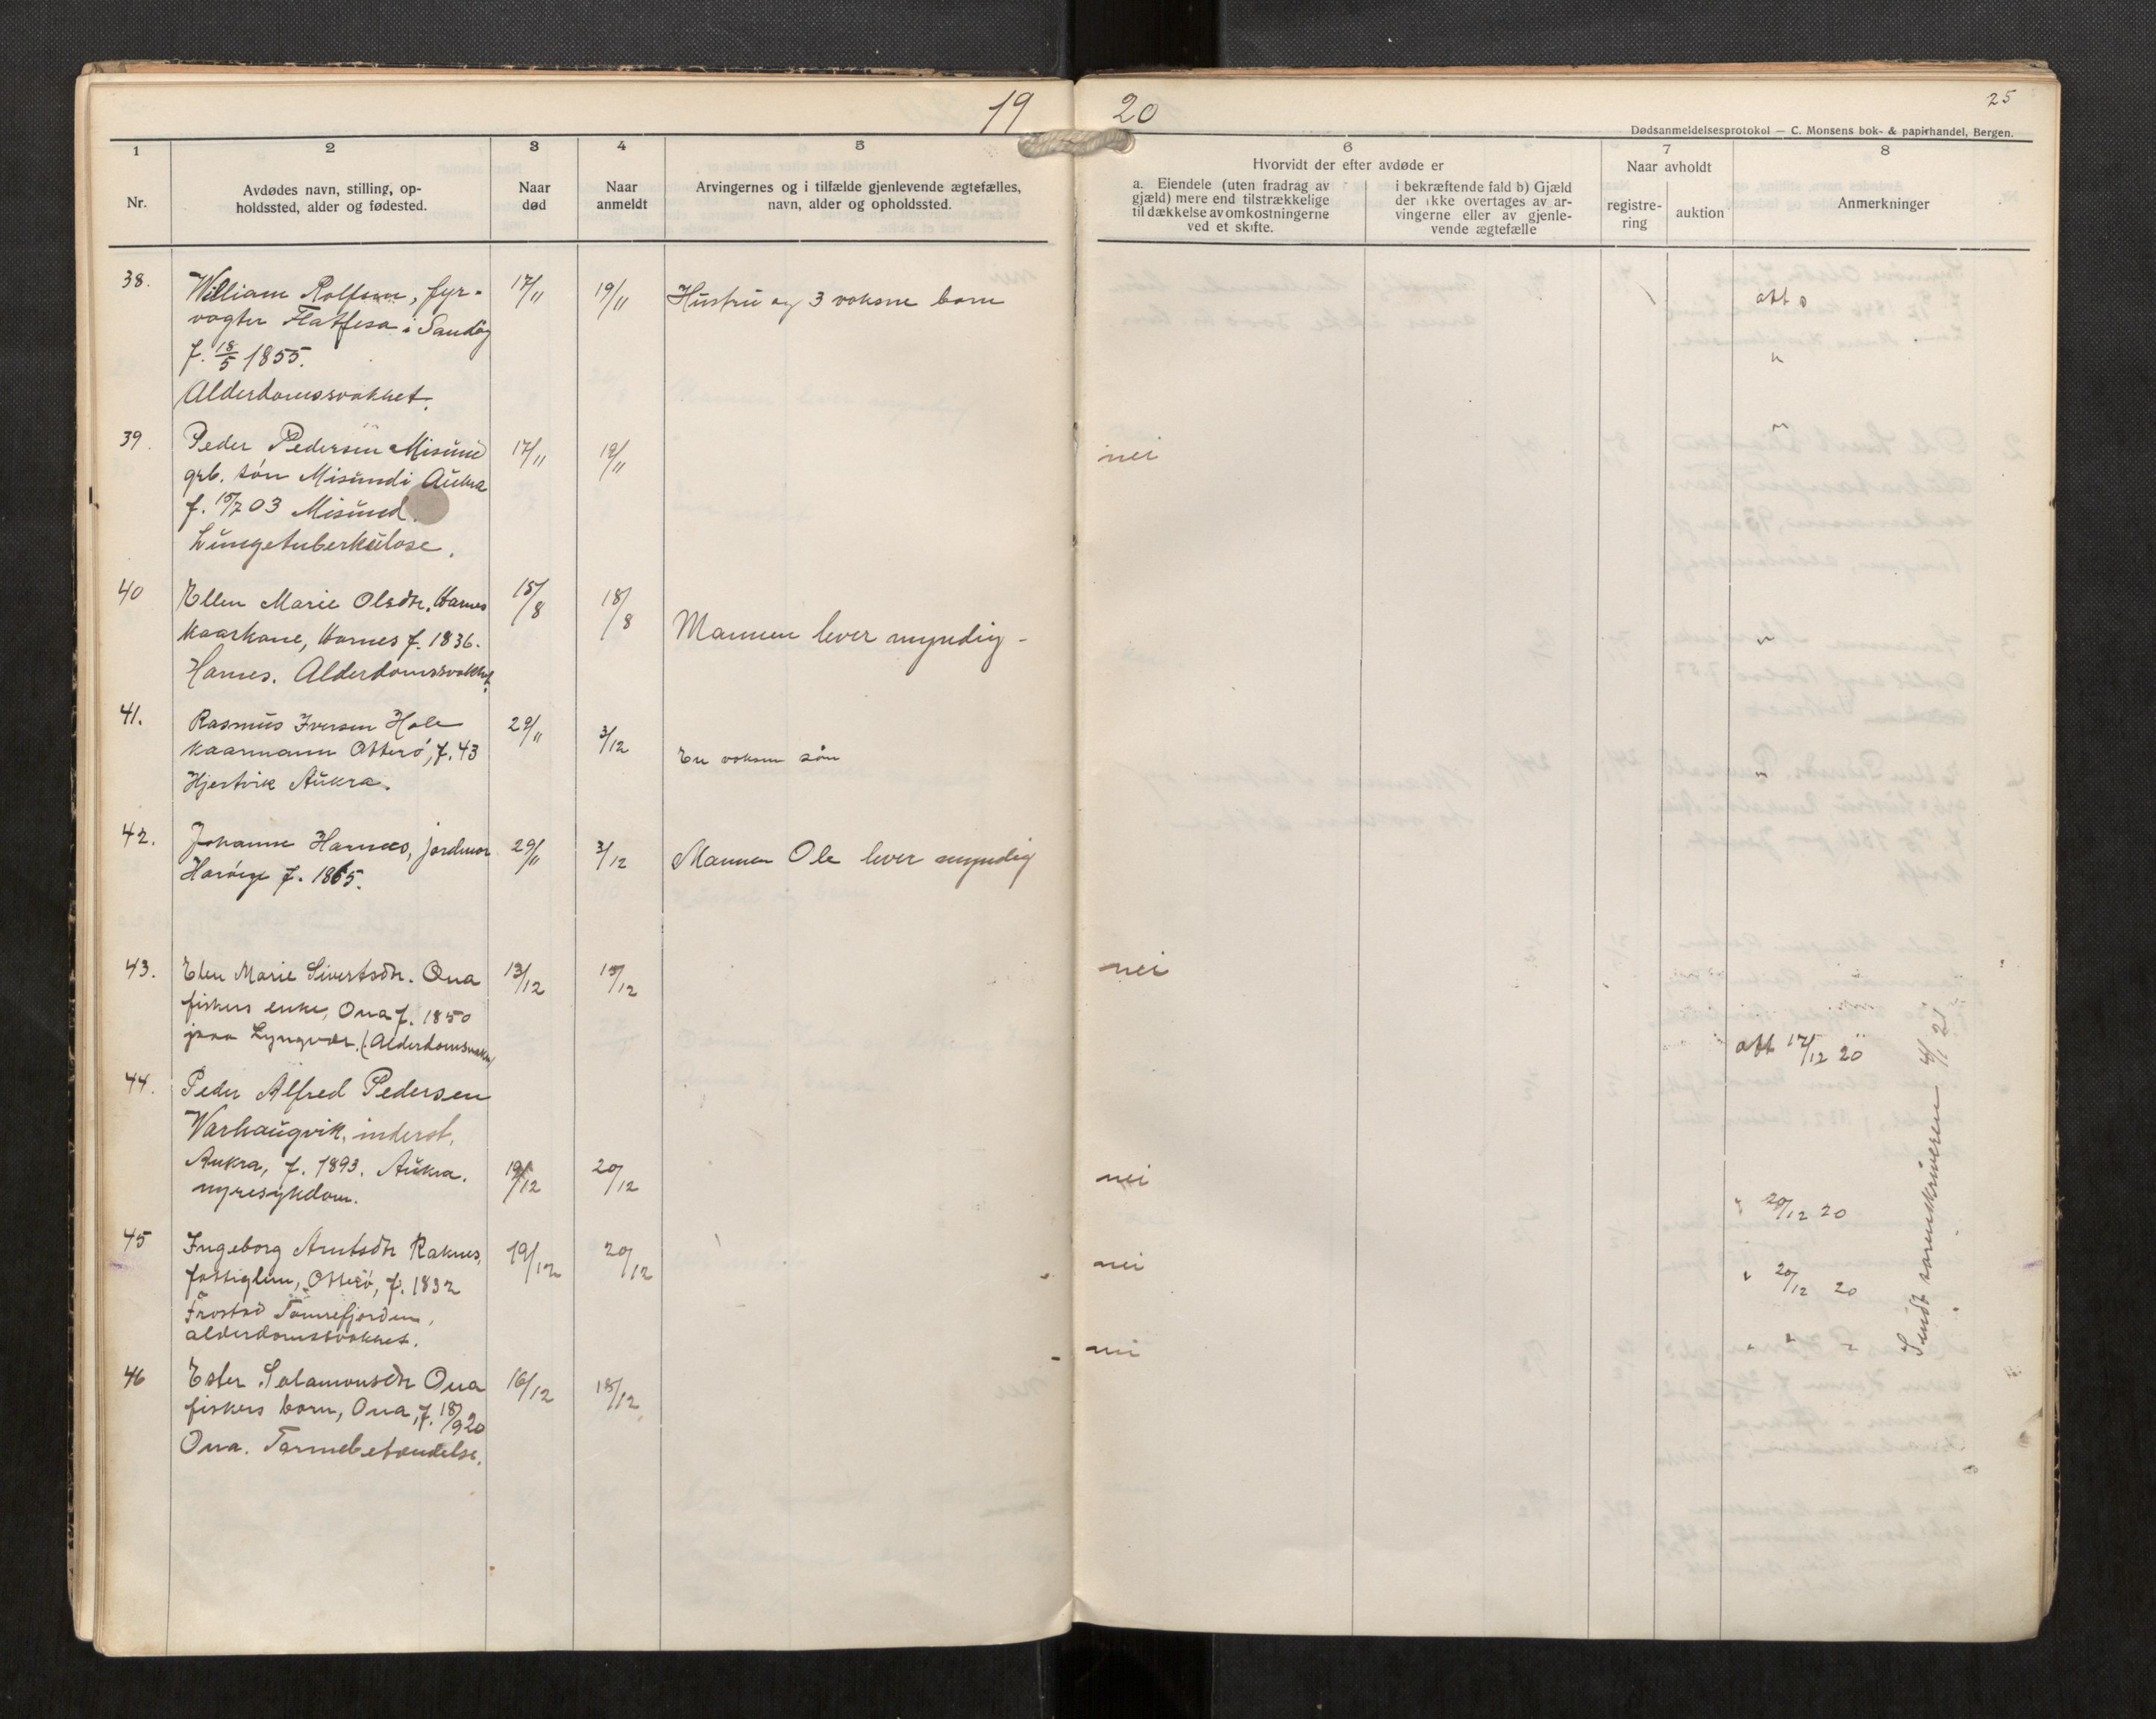 19
20
25
Dødsanmeldelsesprotokol — C. Monsens bok- & papirhandel, Bergen.
1
2
3
4
5
6
7
8
Nr.
Avdødes navn, stilling, op-
holdssted, alder og fødested.
Naar
død
Naar
anmeldt
Arvingernes og i tilfælde gjenlevende ægtefælles,
navn, alder og opholdssted.
Hvorvidt der efter avdøde er
a. Eiendele (uten fradrag av
gjæld) mere end tilstrækkelige
til dækkelse av omkostningerne
ved et skifte.
i bekræftende fald b) Gjæld
der ikke overtages av ar-
vingerne eller av gjenle-
vende ægtefælle
Naar avholdt
registre-
ring
auktion
Anmerkninger
38.
William Rolfsen, fyr-
vogter Flatflesa i Sandøy
f. 18/5 1855.
Alderdomssvakhet.
17/11
19/11
Hustru og 3 voksne born
att
"
39.
Peder Pedersen Misund
grb. søn Misund i Aukra
f. 15/7 03 Misund.
Lungetuberkulose.
17/11
19/11
nei
"
40
Ellen Marie Olsdtr. Harnes
Kaarkone, Harnes f. 1836.
Harnes. Alderdomssvakhet.
15/8
18/8
Mannen lever myndig -
"
41.
Rasmus Iversen Hole
Kaarmann Otterö, f. 43
Hjertvik Aukra.
29/11
3/12
En voksen sön
"
42.
Johanne Harnes, jordmor
Haröys f. 1865.
29/11
3/12
Mannen Ole lever myndig
43.
Elen Marie Sivertsdtr. Ona
fiskers enke, Ona f. 1850
paa Lyngvær. (Alderdomsvakh)
13/12
15/12
nei
att 17/12 20
44.
Peder Alfred Pedersen
Varhaugvik, inderst,
Aukra, f. 1893. Aukra.
nyresykdom.
19/12
20/12
nei
" 20/12 20
45
Ingeborg Arntsdtr Raknes,
fattiglem, Otterö, f. 1832
Frostad Tomrefjorden,
alderdomssvakhet.
19/12
20/12
nei
" 20/12 20
46
Ester Salamonsdtr Ona
fiskers barn, Ona, f. 18/9 20
Ona. Tarmebetændelse.
16/12
18/12
nei
" " "
Sendt sorenskriveren 4/1 21